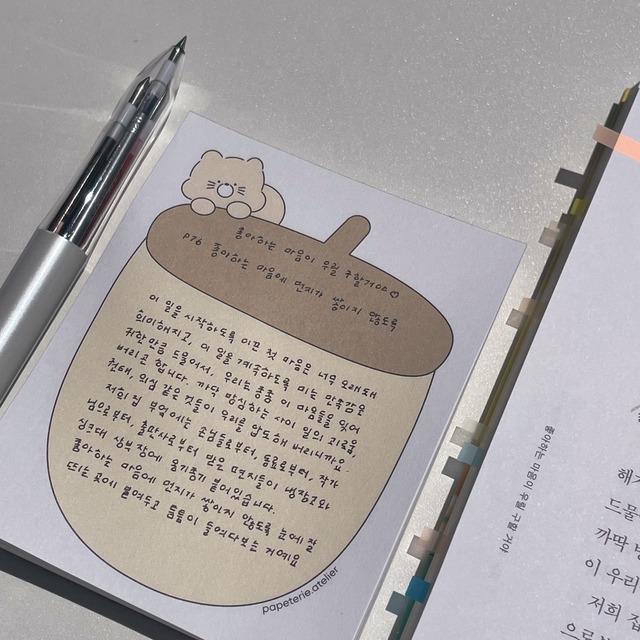 좋아하는 마음이 우릴 구할거야♡
P76 좋아하는 마음에 먼지가 쌓이지 않도록
이 일을 시작하도록 이끈 첫 마음은 너무 오래돼
희미해지고, 이 일을 계속하도록 미는 만족감은
귀한만큼 드물어서, 우리는 종종 이 마음들을 잊어
버리곤 합니다. 까딱 방심하는 사이 일의 괴로움,
권태, 의심 같은 것들이 우리를 압도해 버리니까요.
저희 집 부엌에는 손님들로부터, 동료로부터, 작가
님으로부터, 출판사로부터 받은 편지들이 냉장고와
싱크대 상부장에 옹기종기 붙어있습니다.
좋아하는 마음에 먼지가 쌓이지 않도록 눈에 잘
띄는 곳에 붙여두고 틈틈이 들여다보는 거예요
papeterie.atelier
좋아하는 마음이 우릴 구할 거야
해지
드물
까딱 방
이 우리
저희 집
으로부